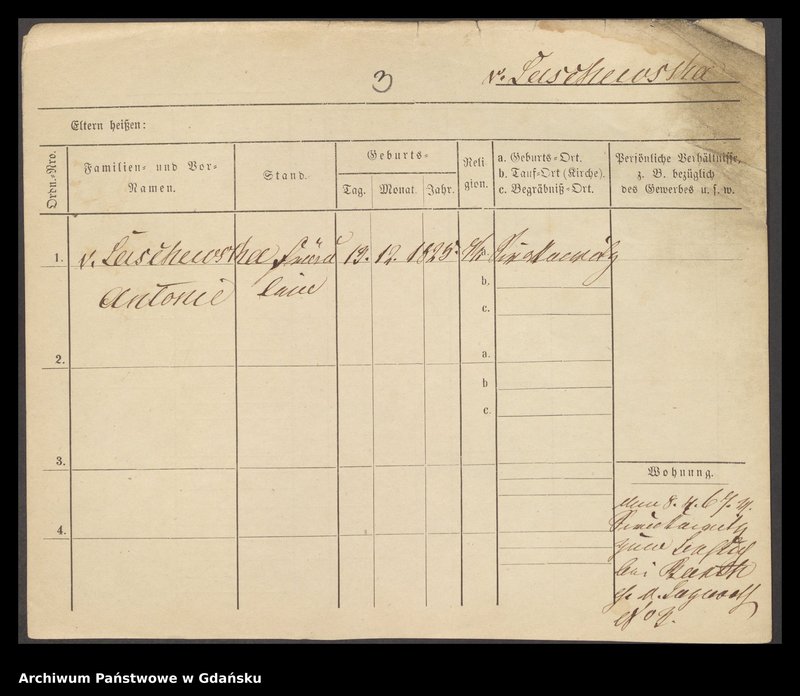 3
v. Laschewska
Eltern heißen:
Ordn.-Nro.
Familien- und Vor-
Namen.
Stand.
Geburts-
Tag.
Monat.
Jahr.
Reli
gion.
a. Geburts-Ort.
b. Tauf-Ort (Kirche).
c. Begräbniß-Ort.
Persönliche Verhältnisse,
z. B. bezüglich
des Gewerbes u. s. w.
1.
v. Laschewska
Antonie
13. 12. 1825.
b.
c.
2.
a.
b
c.
3.
4.
Wohnung.
8. 4. 67
bei
No 2.
Archiwum Państwowe w Gdańsku